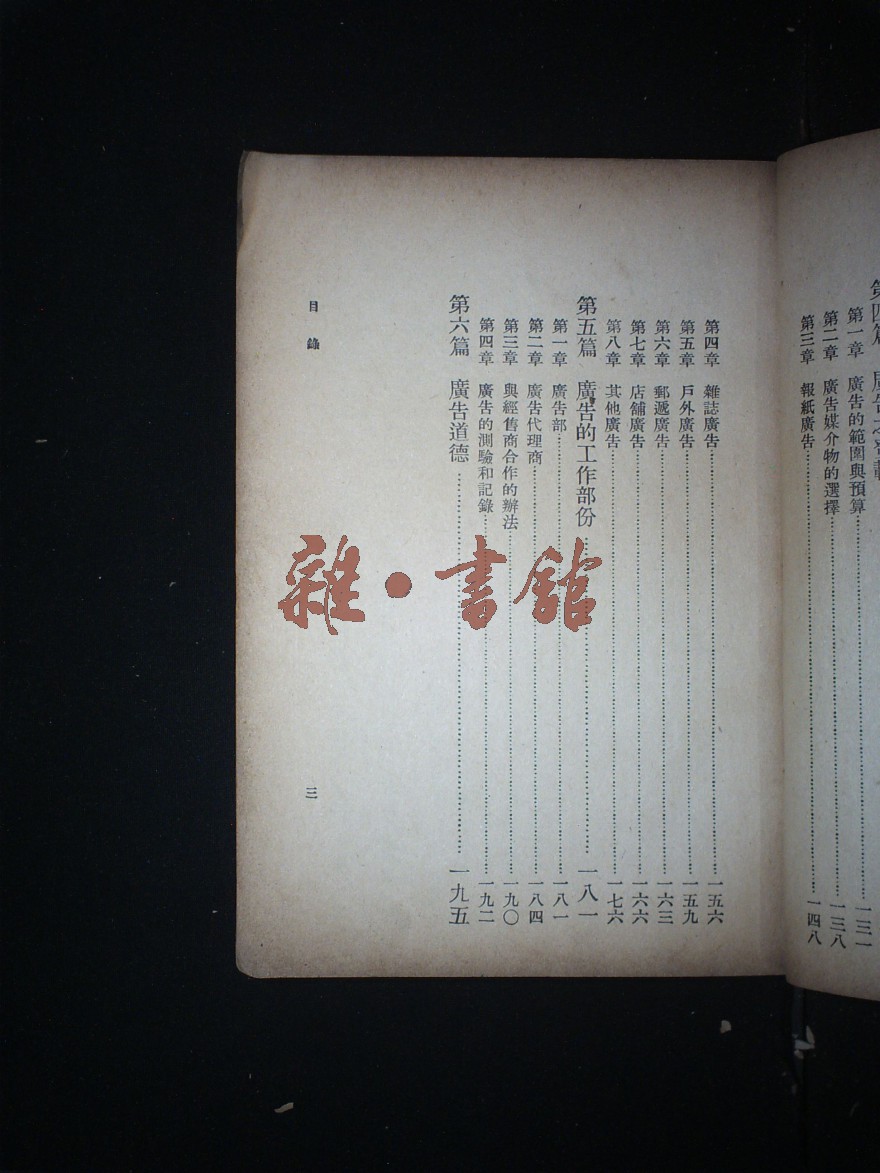 第一章 廣告的範圍與預算 一三一
第二章 廣告媒介物的選擇 一三八
第三章 報紙廣告 一四八
第四章 雜誌廣告 一五六
第五章 戶外廣告 一五九
第六章 郵遞廣告 一六三
第七章 店舖廣告 一六六
第八章 其他廣告 一七六
第五篇 廣告的工作部份 一八一
第一章 廣告部 一八一
第二章 廣告代理商 一八四
第三章 與經售商合作的辦法 一九〇
第四章 廣告的測驗和記錄 一九二
第六篇 廣告道德 一九五
目錄
三
雜·書館